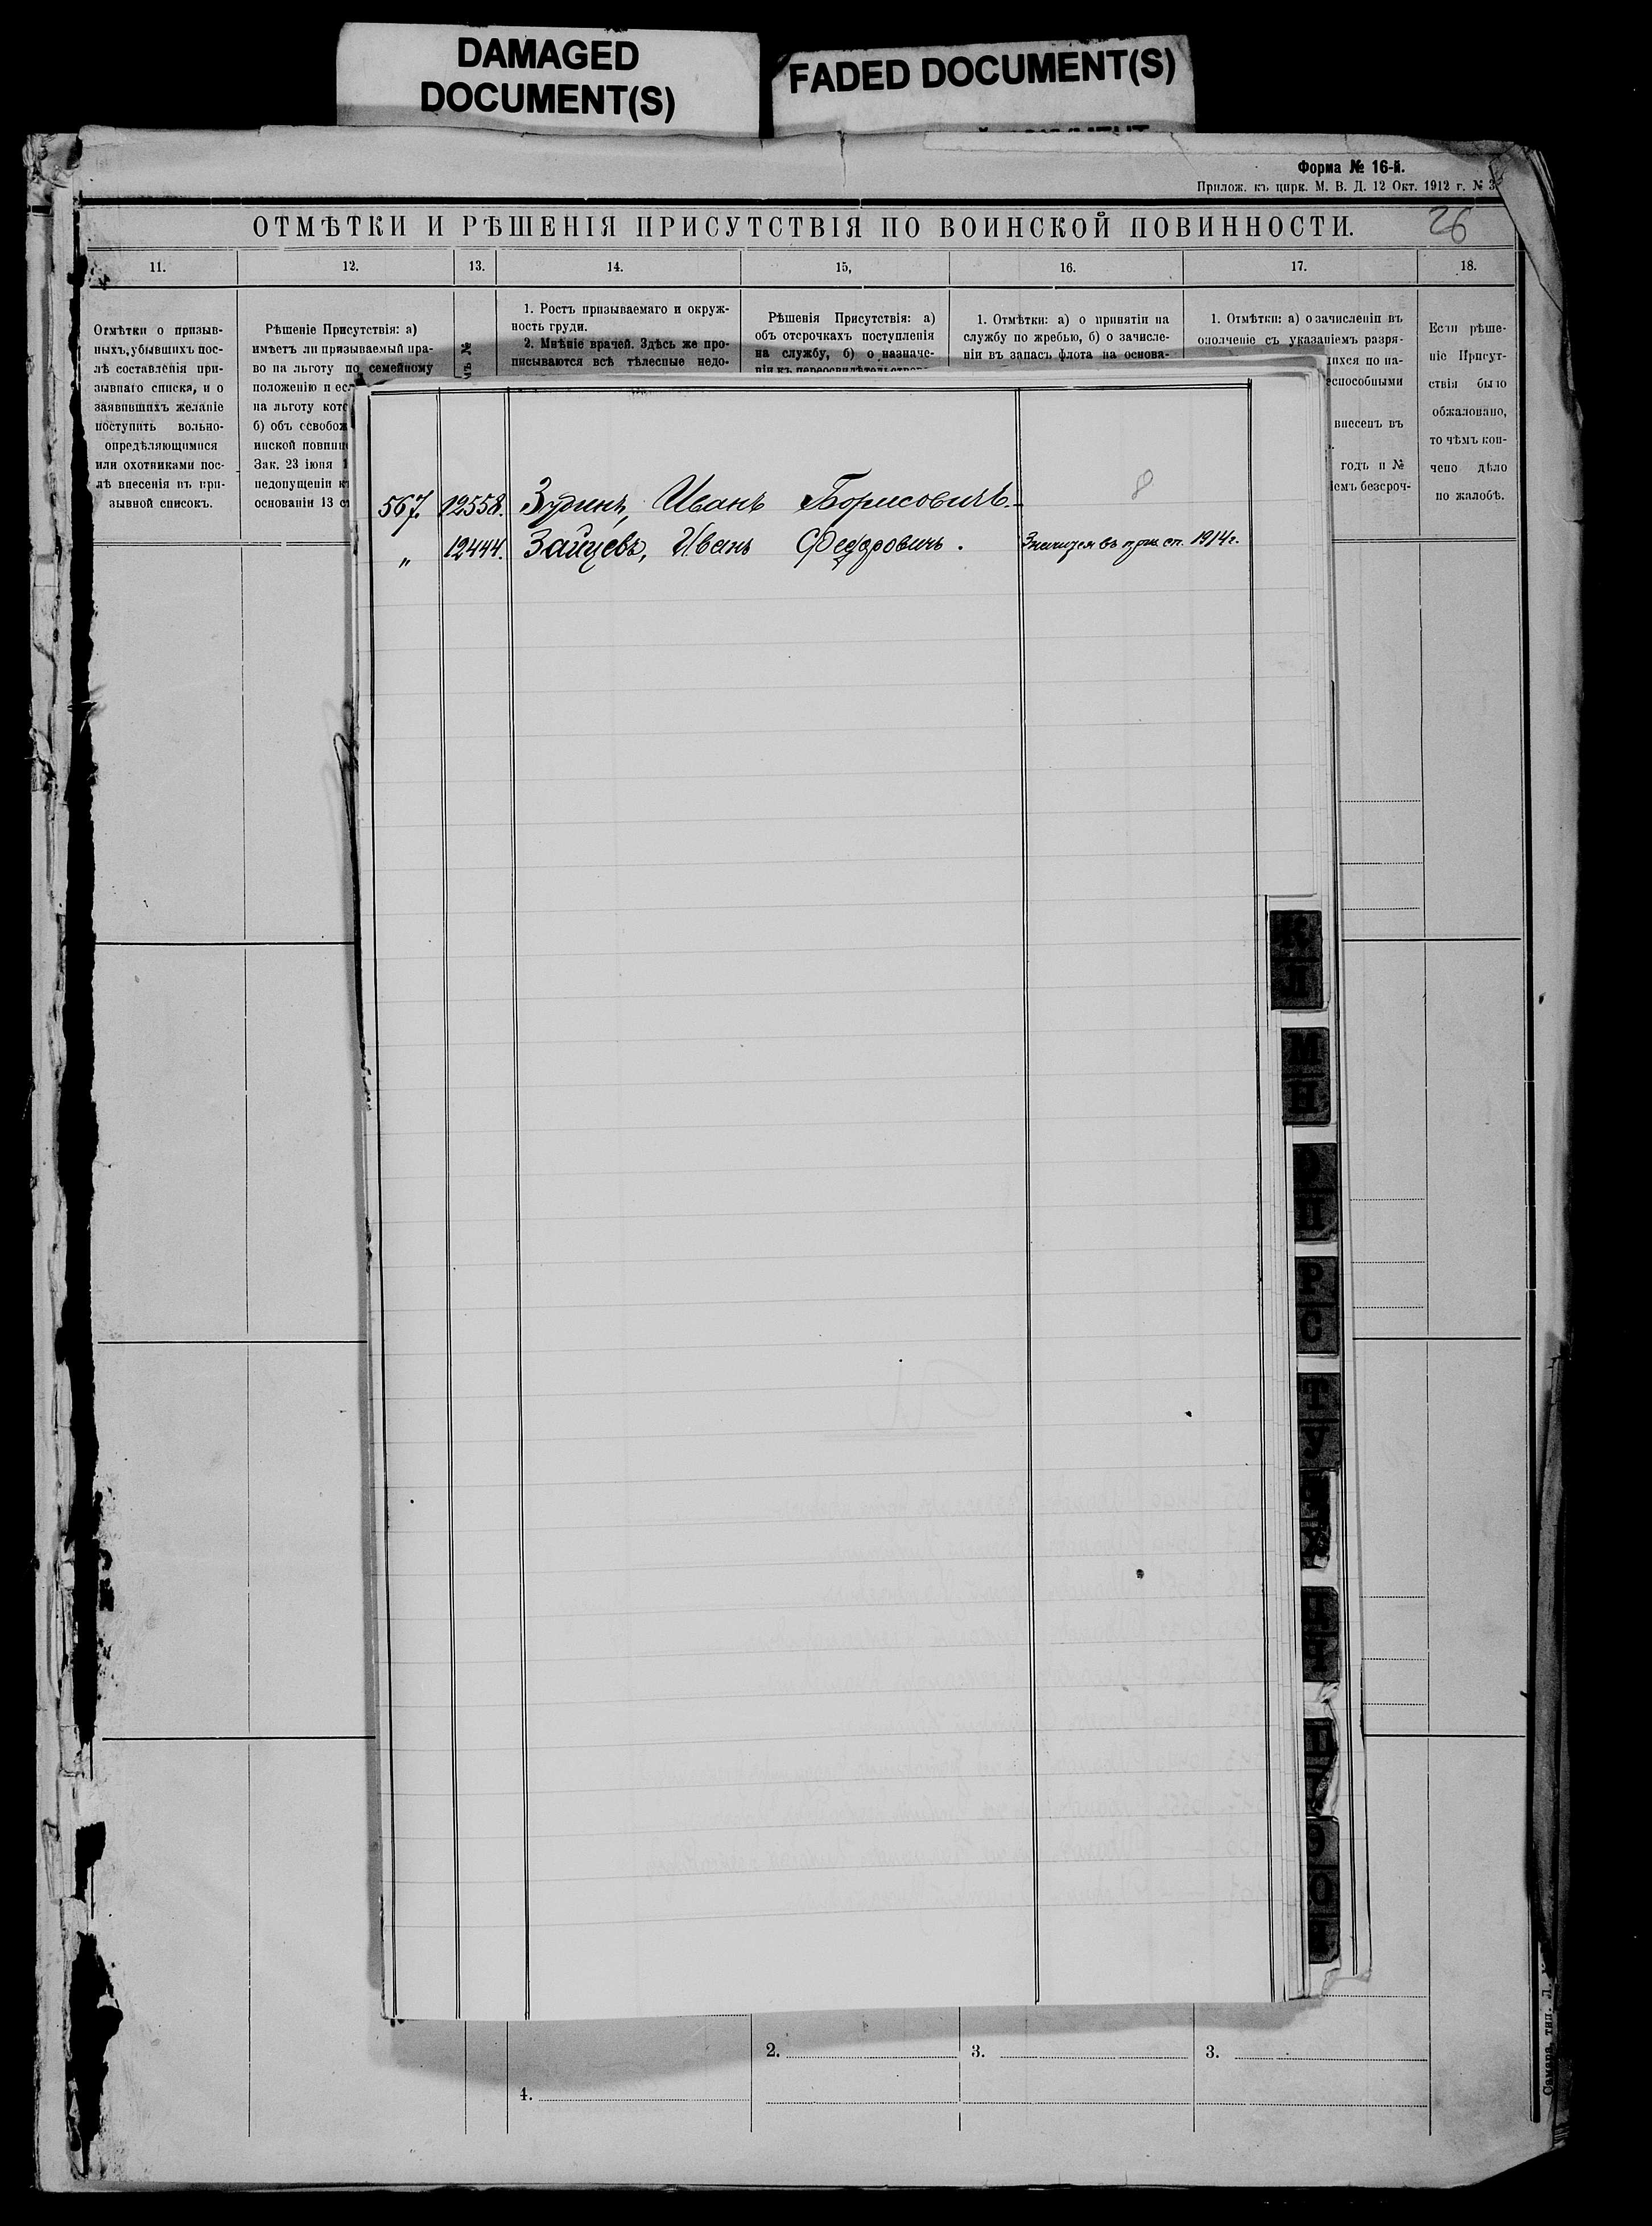 DAMAGED
DOCUMENT(S)
FADED DOCUMENT(S)
Форма № 16-й.
Прилож. къ цирк. М. В. Д. 12 Окт. 1912 г. № 3
ОТМѢТКИ И РѢШЕНІЯ ПРИСУТСТВІЯ ПО ВОИНСКОЙ ПОВИННОСТИ.
26
11.
12.
13.
14.
15,
16.
17.
18.
Отмѣтки о призыв-
ныхъ, убывшихъ пос-
лѣ составленія при-
зывнаго списка, и о
заявившихъ желаніе
поступить вольно-
опредѣляющимися
или охотниками пос-
лѣ внесенія въ при-
зывной списокъ.
Рѣшеніе Присутствія: а)
имѣетъ ли призываемый пра-
во на льготу по семейному
положенію и есл
на льготу кото
б) объ освобож
инской повинн
Зак. 23 іюня 1
недопущеніи к
основаніи 13 с
№
1. Ростъ призываемаго и окруж-
ность груди.
2. Мнѣніе врачей. Здѣсь же про-
писываются всѣ тѣлесные недо-
Рѣшенія Присутствія: а)
объ отсрочкахъ поступленія
на службу, б) о назначе-
ніи къ переосвидѣтельствова-
1. Отмѣтки: а) о принятіи на
службу по жребію, б) о зачисле-
ніи въ запасъ флота на основа-
1. Отмѣтки: а) о зачисленіи въ
ополченіе съ указаніемъ разря-
ихся по на-
еспособными
внесенъ въ
годъ и №
емъ безсроч-
Если рѣше-
ніе Присут-
ствія было
обжаловано,
то чѣмъ кон-
чено дѣло
по жалобѣ.
8
567. 12558. Зудинъ, Иванъ Борисовичъ.
„ 12444. Зайцевъ, Иванъ Федоровичъ. Значится въ приз. сп. 1914 г.
М
Н
Р
С
Т
У
2.
3.
3.
4.
Самара, тип. Л.